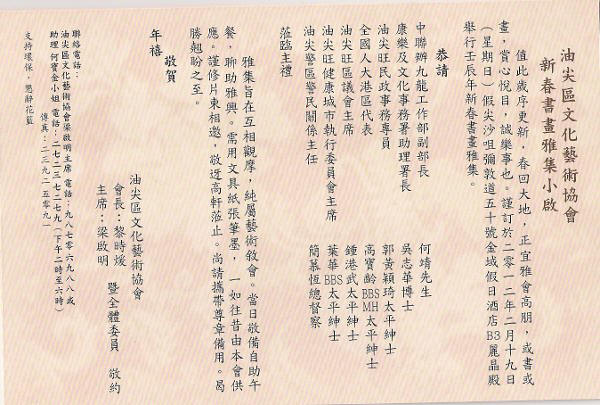 油尖區文化藝術協會
新春書畫雅集小啟
值此歲序更新，春回大地，正宜雅會高朋，或書或
畫，賞心悅目，誠樂事也。謹訂於二零一二年二月十九日
(星期日)假尖沙咀彌敦道五十號金域假日酒店B3麗晶殿
舉行壬辰年新春書畫雅集。
恭請
中聯辦九龍工作部副部長 何靖先生
康樂及文化事務署助理署長 吳志華博士
油尖旺民政事務專員 郭黃穎琦太平紳士
全國人大港區代表 高寶齡BBS MH太平紳士
油尖旺區議會主席 鍾港武太平紳士
油尖旺健康城市執行委員會主席 葉華BBS太平紳士
油尖警區警民關係主任 簡慕恆總督察
蒞臨主禮
雅集旨在互相觀摩，純屬藝術敘會。當日敬備自助午
餐，聊助雅興。需用文具紙張筆墨，一如往昔由本會供
應。謹修片柬相邀，敬迓高軒蒞止。尚請攜帶尊章備用。曷
勝翹盼之至。
敬賀
年禧
油尖區文化藝術協會
會長：黎時煖
主席：梁啟明
暨全體委員 敬約
聯絡電話：
油尖區文化藝術協會梁啟明主席 電話：九八七零六九八八或
助理何寶金小姐 電話：二七二三七二七九(下午二時至六時)
傳真：二三九二五零九一
支持環保，懇辭花籃